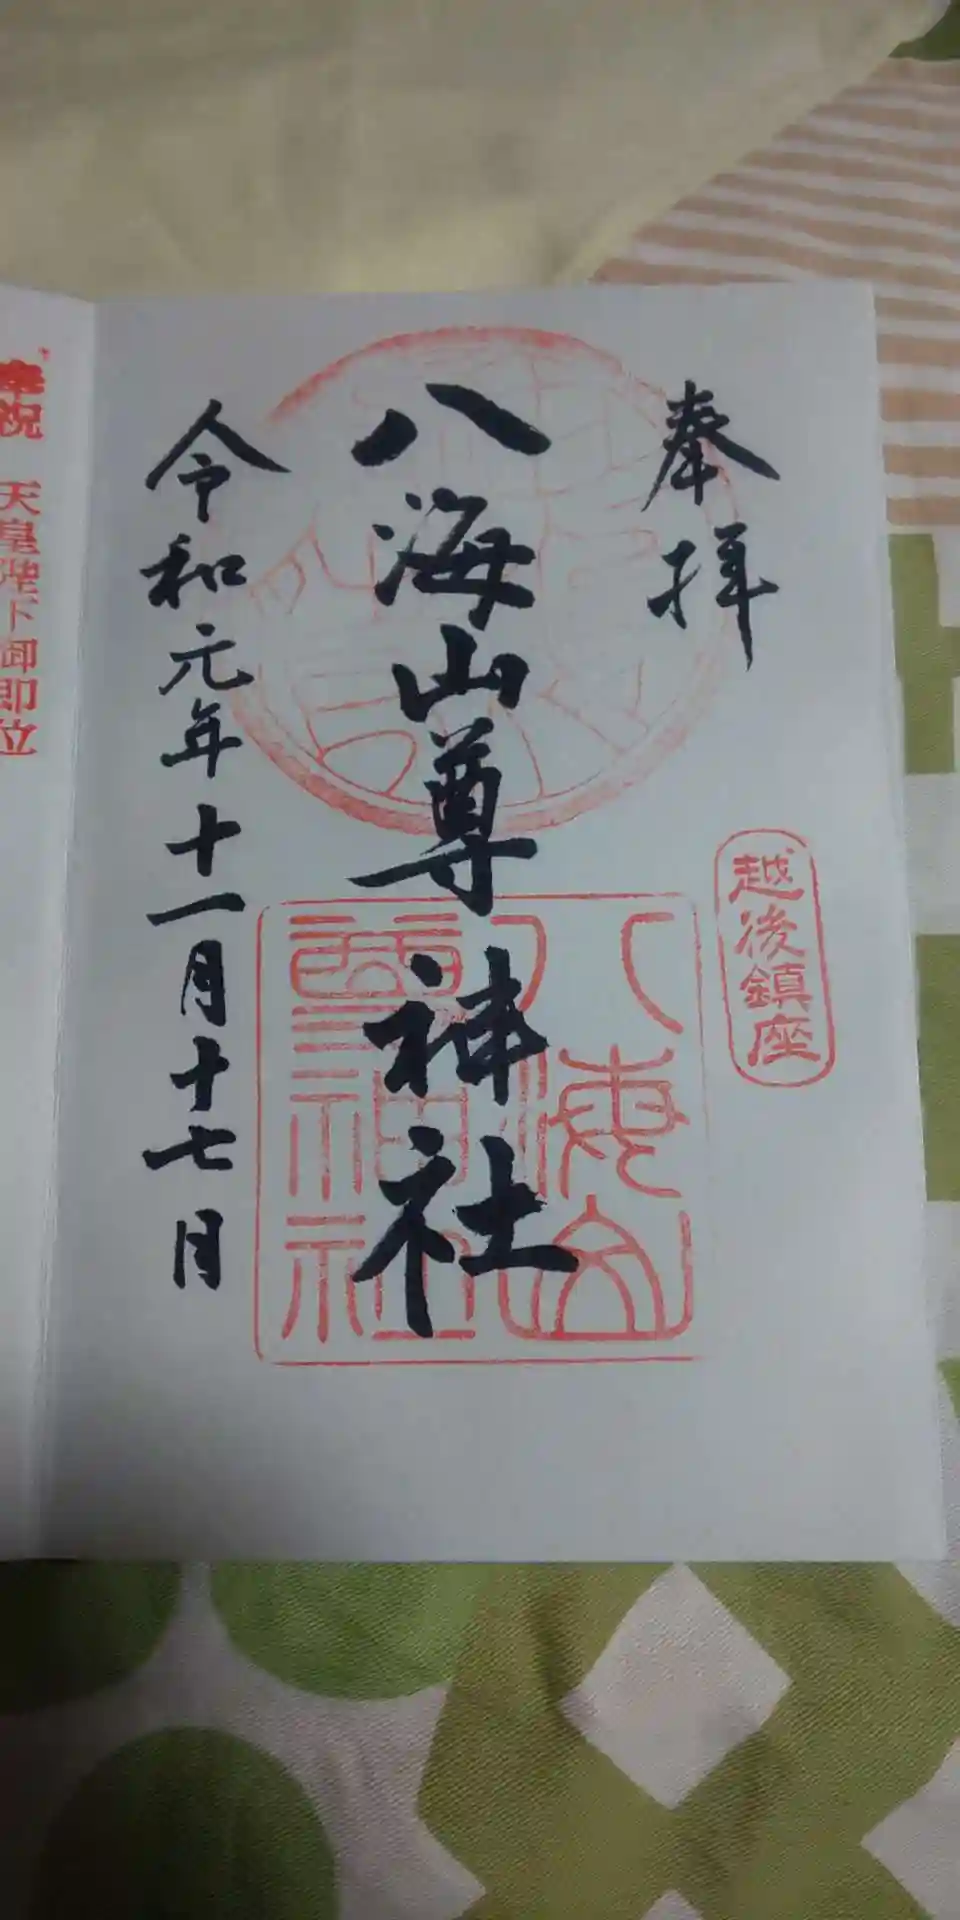 奉拝
越後鎮座
八海山尊神社
八海山
尊神社
令和元年十一月十七日
奉祝 天皇陛下御即位